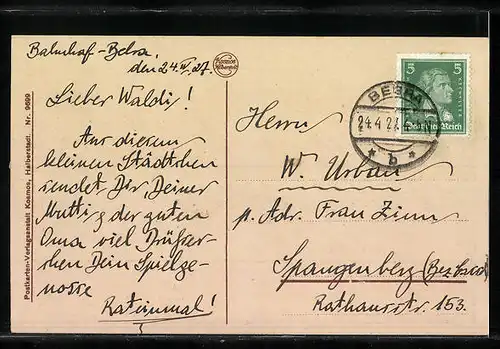 Bahnhof-Bebra,
den 24.IV.27.
Lieber Waldi!
Aus diesem
kleinen Städtchen
sendet Dir, Deiner
Mutti & der guten
Oma viel Grüßer-
chen Dein Spielge-
nosse
Rateinmal!
Postkarten-Verlagsanstalt Kosmos, Halberstadt. Nr. 9699
5 5
Deutsches Reich
BEBRA
24.4.27
* b *
Herrn
W. Urban
p. Adr. Frau Zinn
Spangenberg (Bez. Cassel)
Rathausstr. 153.